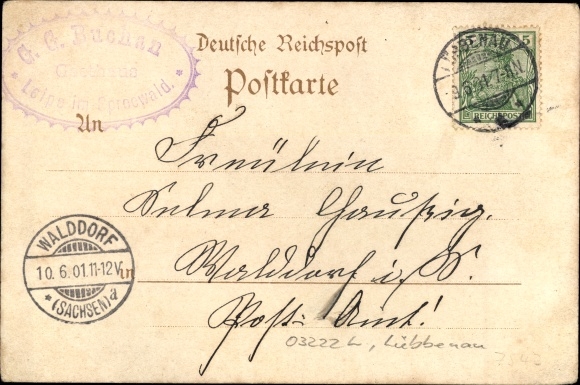 G. E. Buchan
Gasthaus
Leipe im Spreewald.
Deutsche Reichspost
Postkarte
An
LÜBBENAU
9.6.01.7-8N.
5
REICHSPOST
Fräulein
Selma
Waldorf i. S.
Post-Amt!
WALDDORF
10.6.01.11-12V.
*(SACHSEN)a
in
03222 L, Lübbenau